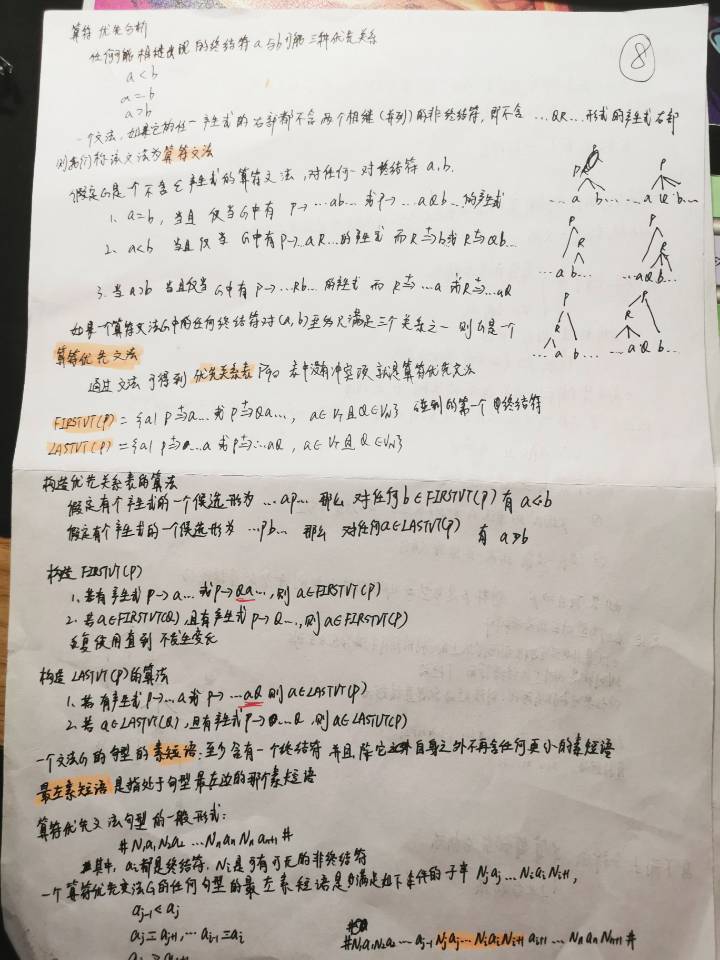 算符优先分析
任何可能相继出现的终结符a与b可能三种优先关系
a<b
a=b
a>b
⑧
一个文法,如果它的任一产生式的右部都不含两个相继(并列)的非终结符,即不含 …QR…形式的产生式右部
则我们称该文法为算符文法
假定G是个不含ε产生式的算符文法,对任何一对终结符a,b.
1. a=b, 当且仅当G中有 P→…ab… 或P→…aQb…的产生式
2. a<b 当且仅当 G中有P→…aR…的产生式 而R⇒+b或R⇒+Qb…
3. 当a>b 当且仅当 G中有P→…Rb… 的产生式 而 R⇒+…a 或R⇒+…aQ
P
…a b…
P
…a Q b…
P
R
…a b…
P
R
…a Q b…
P
R
…a b…
P
R
…a Q b…
如果一个算符文法G中的任何终结符对(a,b)至多只满足三个关系之一 则G是一个
算符优先文法
通过文法可得到 优先关系表 表中没有冲突项 就是算符优先文法
FIRSTVT(P) = {a| P⇒+a… 或P⇒+Qa…, a∈VT且Q∈VN} 碰到的第一个 终结符
LASTVT(P) = {a| P⇒+…a 或P⇒+…aQ, a∈VT且Q∈VN}
构造优先关系表的算法
假定有个产生式的一个候选形为 …aP… 那么 对任何b∈FIRSTVT(P) 有 a<b
假定有个产生式的一个候选形为 …Pb… 那么 对任何a∈LASTVT(P) 有 a>b
构造 FIRSTVT(P)
1. 若有产生式 P→a… 或P→Qa…, 则 a∈FIRSTVT(P)
2. 若a∈FIRSTVT(Q),且有产生式P→Q…,则 a∈FIRSTVT(P)
反复使用直到 不发生变化
构造 LASTVT(P)的算法
1. 若有产生式P→…a 或 P→…aQ 则 a∈LASTVT(P)
2. 若 a∈LASTVT(Q),且有产生式P→…Q,则 a∈LASTVT(P)
一个文法G的句型的素短语:至少含有一个终结符 并且 除它自身之外不再含任何更小的素短语
最左素短语是指处于句型最左边的那个素短语
算符优先文法句型的一般形式:
#N1a1N2a2 …NnanNn+1#
其中, ai都是终结符, Ni是可有可无的非终结符
一个算符优先文法G的任何句型的最左素短语是满足如下条件的子串 Njaj…NiaiNi+1,
aj-1<aj
aj=aj+1,… ai-1=ai
ai>ai+1
#N1a1N2a2…aj-1Njaj…NiaiNi+1ai+1…NnanNn+1#